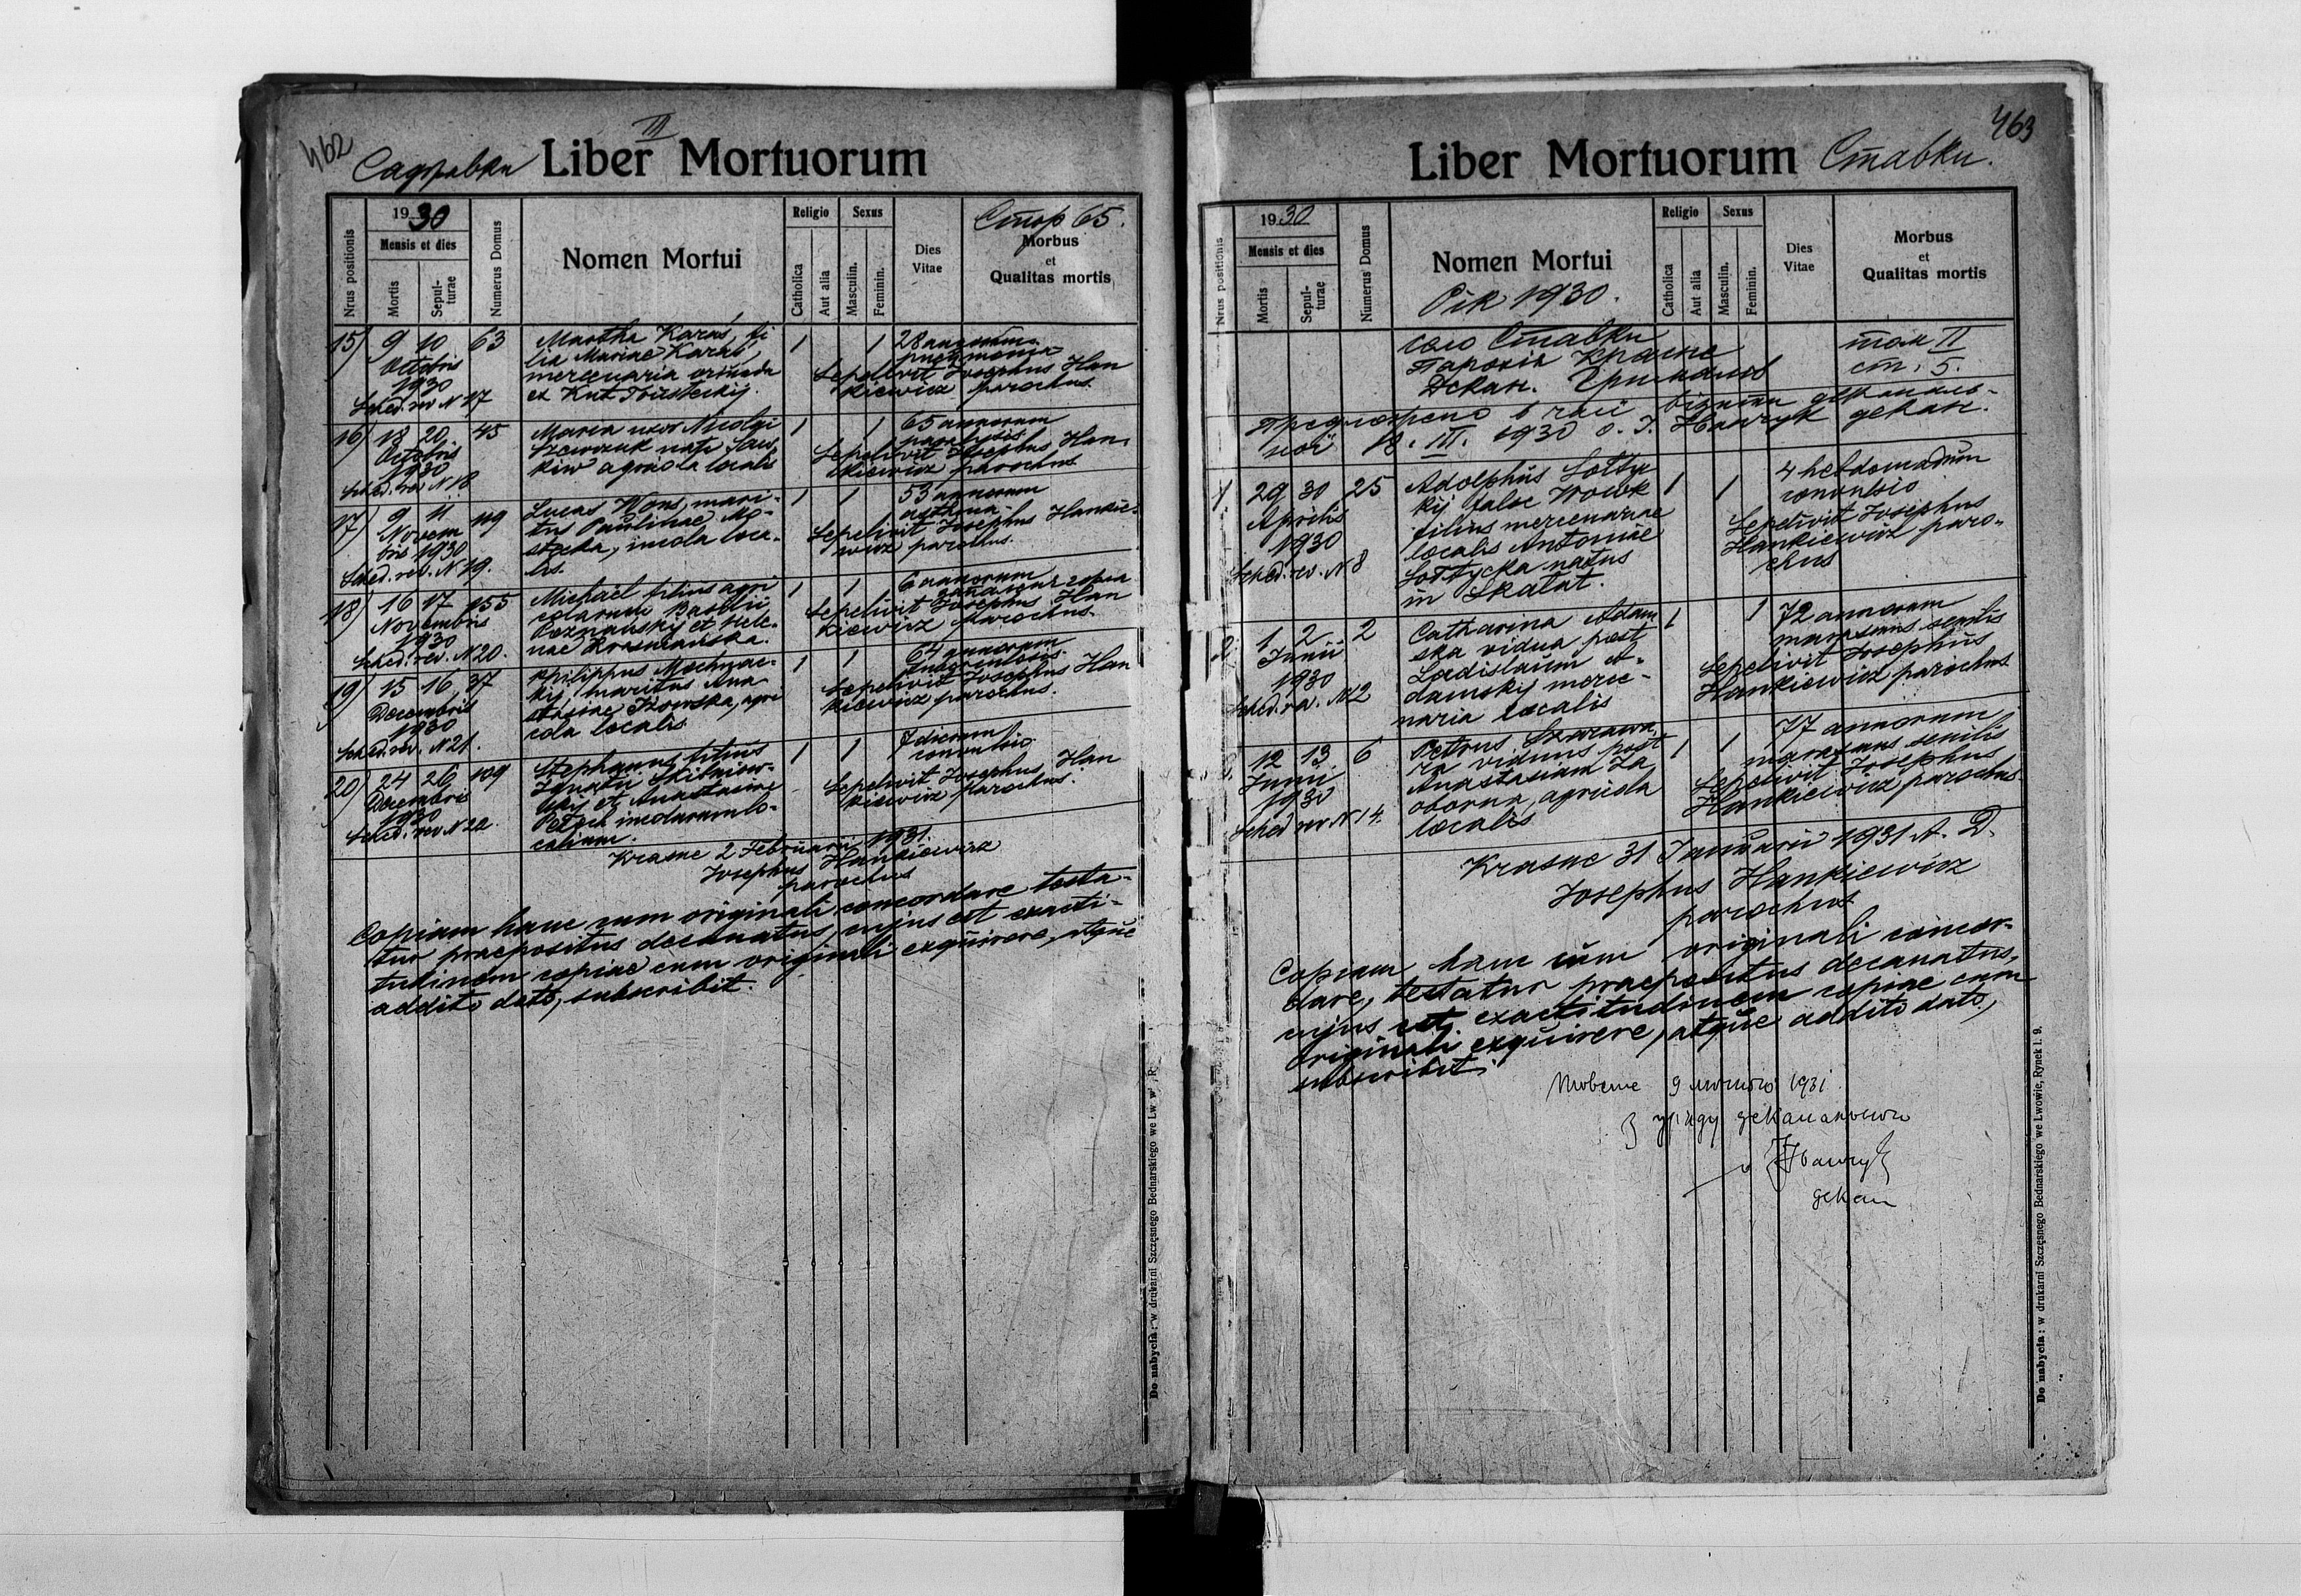 462
III
Садравки Liber Mortuorum
Nrus positionis
1930
Mensis et dies
Mortis
Sepul-
turae
Numerus Domus
Nomen Mortui
Religio
Catholica
Aut alia
Sexus
Masculin.
Feminin.
Dies
Vitae
Стор 65.
Morbus
et
Qualitas mortis
15) 9 10 63
Octobris
1930
Sched. rev N 17
Martha Karaś, fi
lia Mariae Karaś,
mercenaria oriunda
ex Kut Tousteckij.
1 1
28 annorum
pneumonia
Sepelivit Josephus Han
kiewicz parochus.
16) 18 20 45
Octobris
1930
Sched. rev N 18
Maria uxor
Szewczuk nata
agricola localis
1 1
65 annorum
paralysis
Sepelivit Josephus Han
kiewicz parochus
17) 9 11 119
Novem
bris 1930
Sched. rev. N 19.
Lucas Wons, mari-
tus Paulinae Mo-
, incola loca-
lis.
1 1
53 annorum
asthma
Sepelivit Josephus Hankie-
wicz parochus.
18) 16 17 155
Novembris
1930
Sched. rev. N 20.
Michael filius agri
colarum Basilii
Poznanskij et Hele-
nae
1 1
6 annorum
Sepelivit Josephus Han
kiewicz parochus.
19) 15 16 37
Decembris
1930
Sched. rev. N 21.
Philippus
kij maritus Ana
stasiae , agri
cola localis
1 1
64 annorum
tuberculosis
Sepelivit Josephus Han
kiewicz parochus.
20) 24 26 109
Decembris
1930
Sched. rev N 22.
Stephanus filius
Ignatii
et Anastasiae
incolarum lo-
calium.
1 1
7 dierum
convulsio
Sepelivit Josephus Han
kiewicz parochus.
Krasne 2 Februarii 1931.
Josephus Hankiewicz
parochus
Copiam hanc cum originali concordare testa-
tur praepositus decanatus, cujus est exacti-
tudinem copiae cum originali exquirere, atque
addito dato, subscribit.
Do nabycia: w drukarni Szczęsnego Bednarskiego we Lw w', R
463
Liber Mortuorum Ставки.
Nrus positionis
1930
Mensis et dies
Mortis
Sepul-
turae
Numerus Domus
Nomen Mortui
Рік 1930.
Religio
Catholica
Aut alia
Sexus
Masculin.
Feminin.
Dies
Vitae
Morbus
et
Qualitas mortis
село Ставки
Парохія Красне
Декан. Гримайлов
том II
ст. 5.
Предложено в часі візитації деканаль-
ної 12. III. 1930 о. декан.
1 29 30 25
Aprilis
1930
Sched. rev. N 8
Adolphus Sołtyc
kij false Wowk
filius mercenariae
localis Antoniae
Sołtycka natus
in Skałat.
1 1
4 hebdomadum
convulsio
Sepelivit Josephus
Hankiewicz paro-
chus
2. 1 2 2
Junii
1930
Sched. rev. N 12
Catharina Adam
ska vidua post
Ladislaum A-
damskij merce-
naria localis
1 1
72 annorum
marasmus senilis
Sepelivit Josephus
Hankiewicz parochus
3. 12 13 6
Junii
1930
Sched rev N 14.
Petrus
ra viduus post
Anastasiam Za
oborna, agricola
localis
1 1
77 annorum
marasmus senilis
Sepelivit Josephus
Hankiewicz parochus.
Krasne 31 Januarii 1931 A. D.
Josephus Hankiewicz
parochus
Copiam hanc cum originali concor-
dare, testatur praepositus decanatus,
cujus est exactitudinem copiae cum
originali exquirere, atque addito dato,
subscribit.
Товсте 9 лютого 1931.
З уряду деканального
декан
Do nabycia: w drukarni Szczęsnego Bednarskiego we Lwowie, Rynek l. 9.